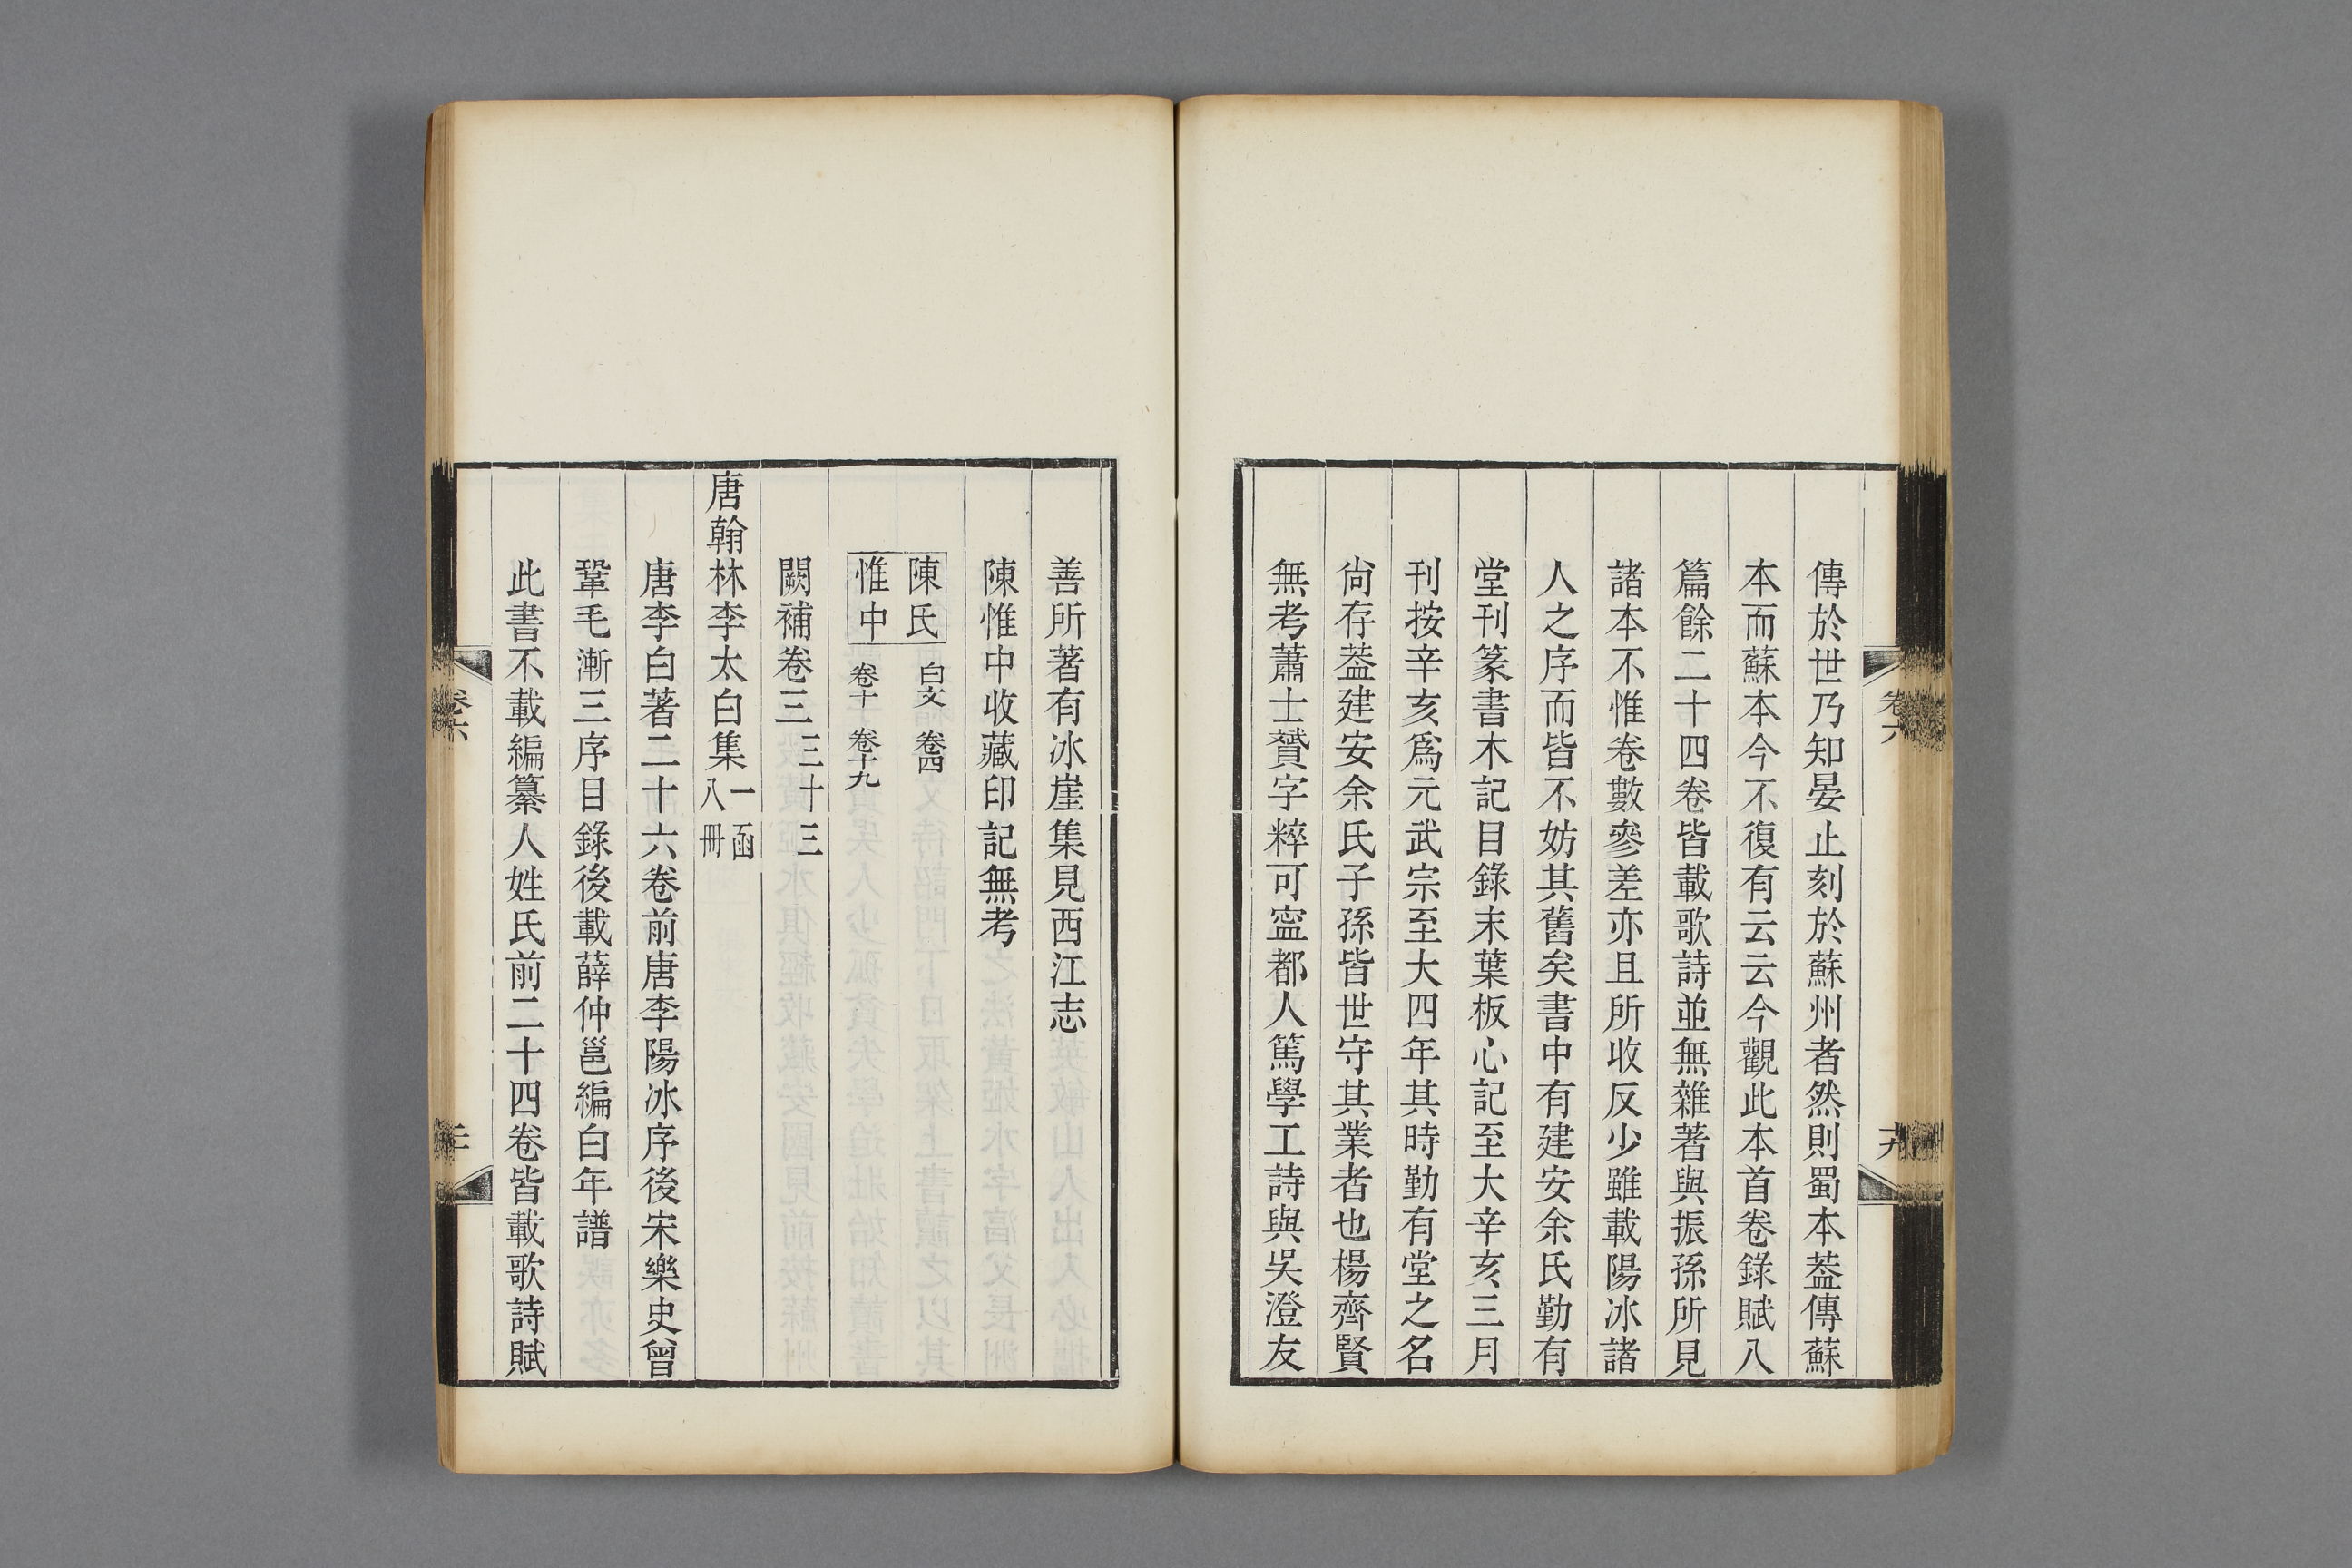 傳於世乃知晏止刻於蘇州者然則蜀本葢傳蘇
本而蘇本今不復有云云今觀此本首卷錄賦八
篇餘二十四卷皆載歌詩並無雜著與振孫所見
諸本不惟卷數參差亦且所收反少雖載陽冰諸
人之序而皆不妨其舊矣書中有建安余氏勤有
堂刊篆書木記目錄末葉板心記至大辛亥三月
刊按辛亥爲元武宗至大四年其時勤有堂之名
尙存葢建安余氏子孫皆世守其業者也楊齊賢
無考蕭士贇字粹可寍都人篤學工詩與吳澄友
卷六
十九
善所著有冰崖集見西江志
陳惟中收藏印記無考
陳氏
惟中
白文 卷四
卷十 卷十九
闕補卷三 三十三
唐翰林李太白集 一函
八冊
唐李白著二十六卷前唐李陽冰序後宋樂史曾
鞏毛漸三序目錄後載薛仲邕編白年譜
此書不載編纂人姓氏前二十四卷皆載歌詩賦
卷六
二十